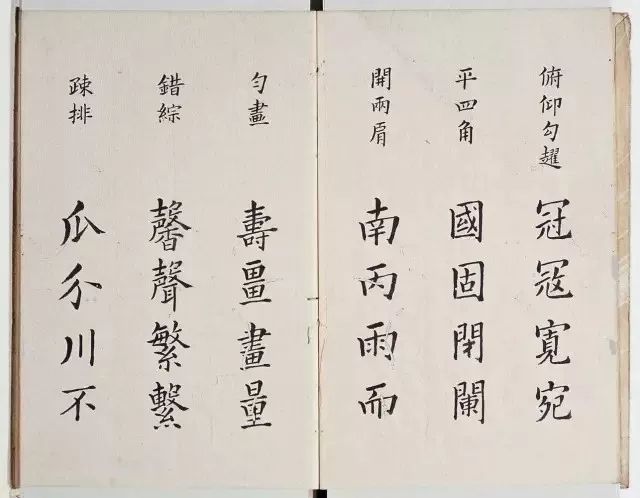 俯仰勾趯
冠冦寛宛
平四角
國固閉闌
開兩肩
南丙雨而
勻畫
壽畺畫量
錯綜
馨聲繁繫
疎排
瓜介川不